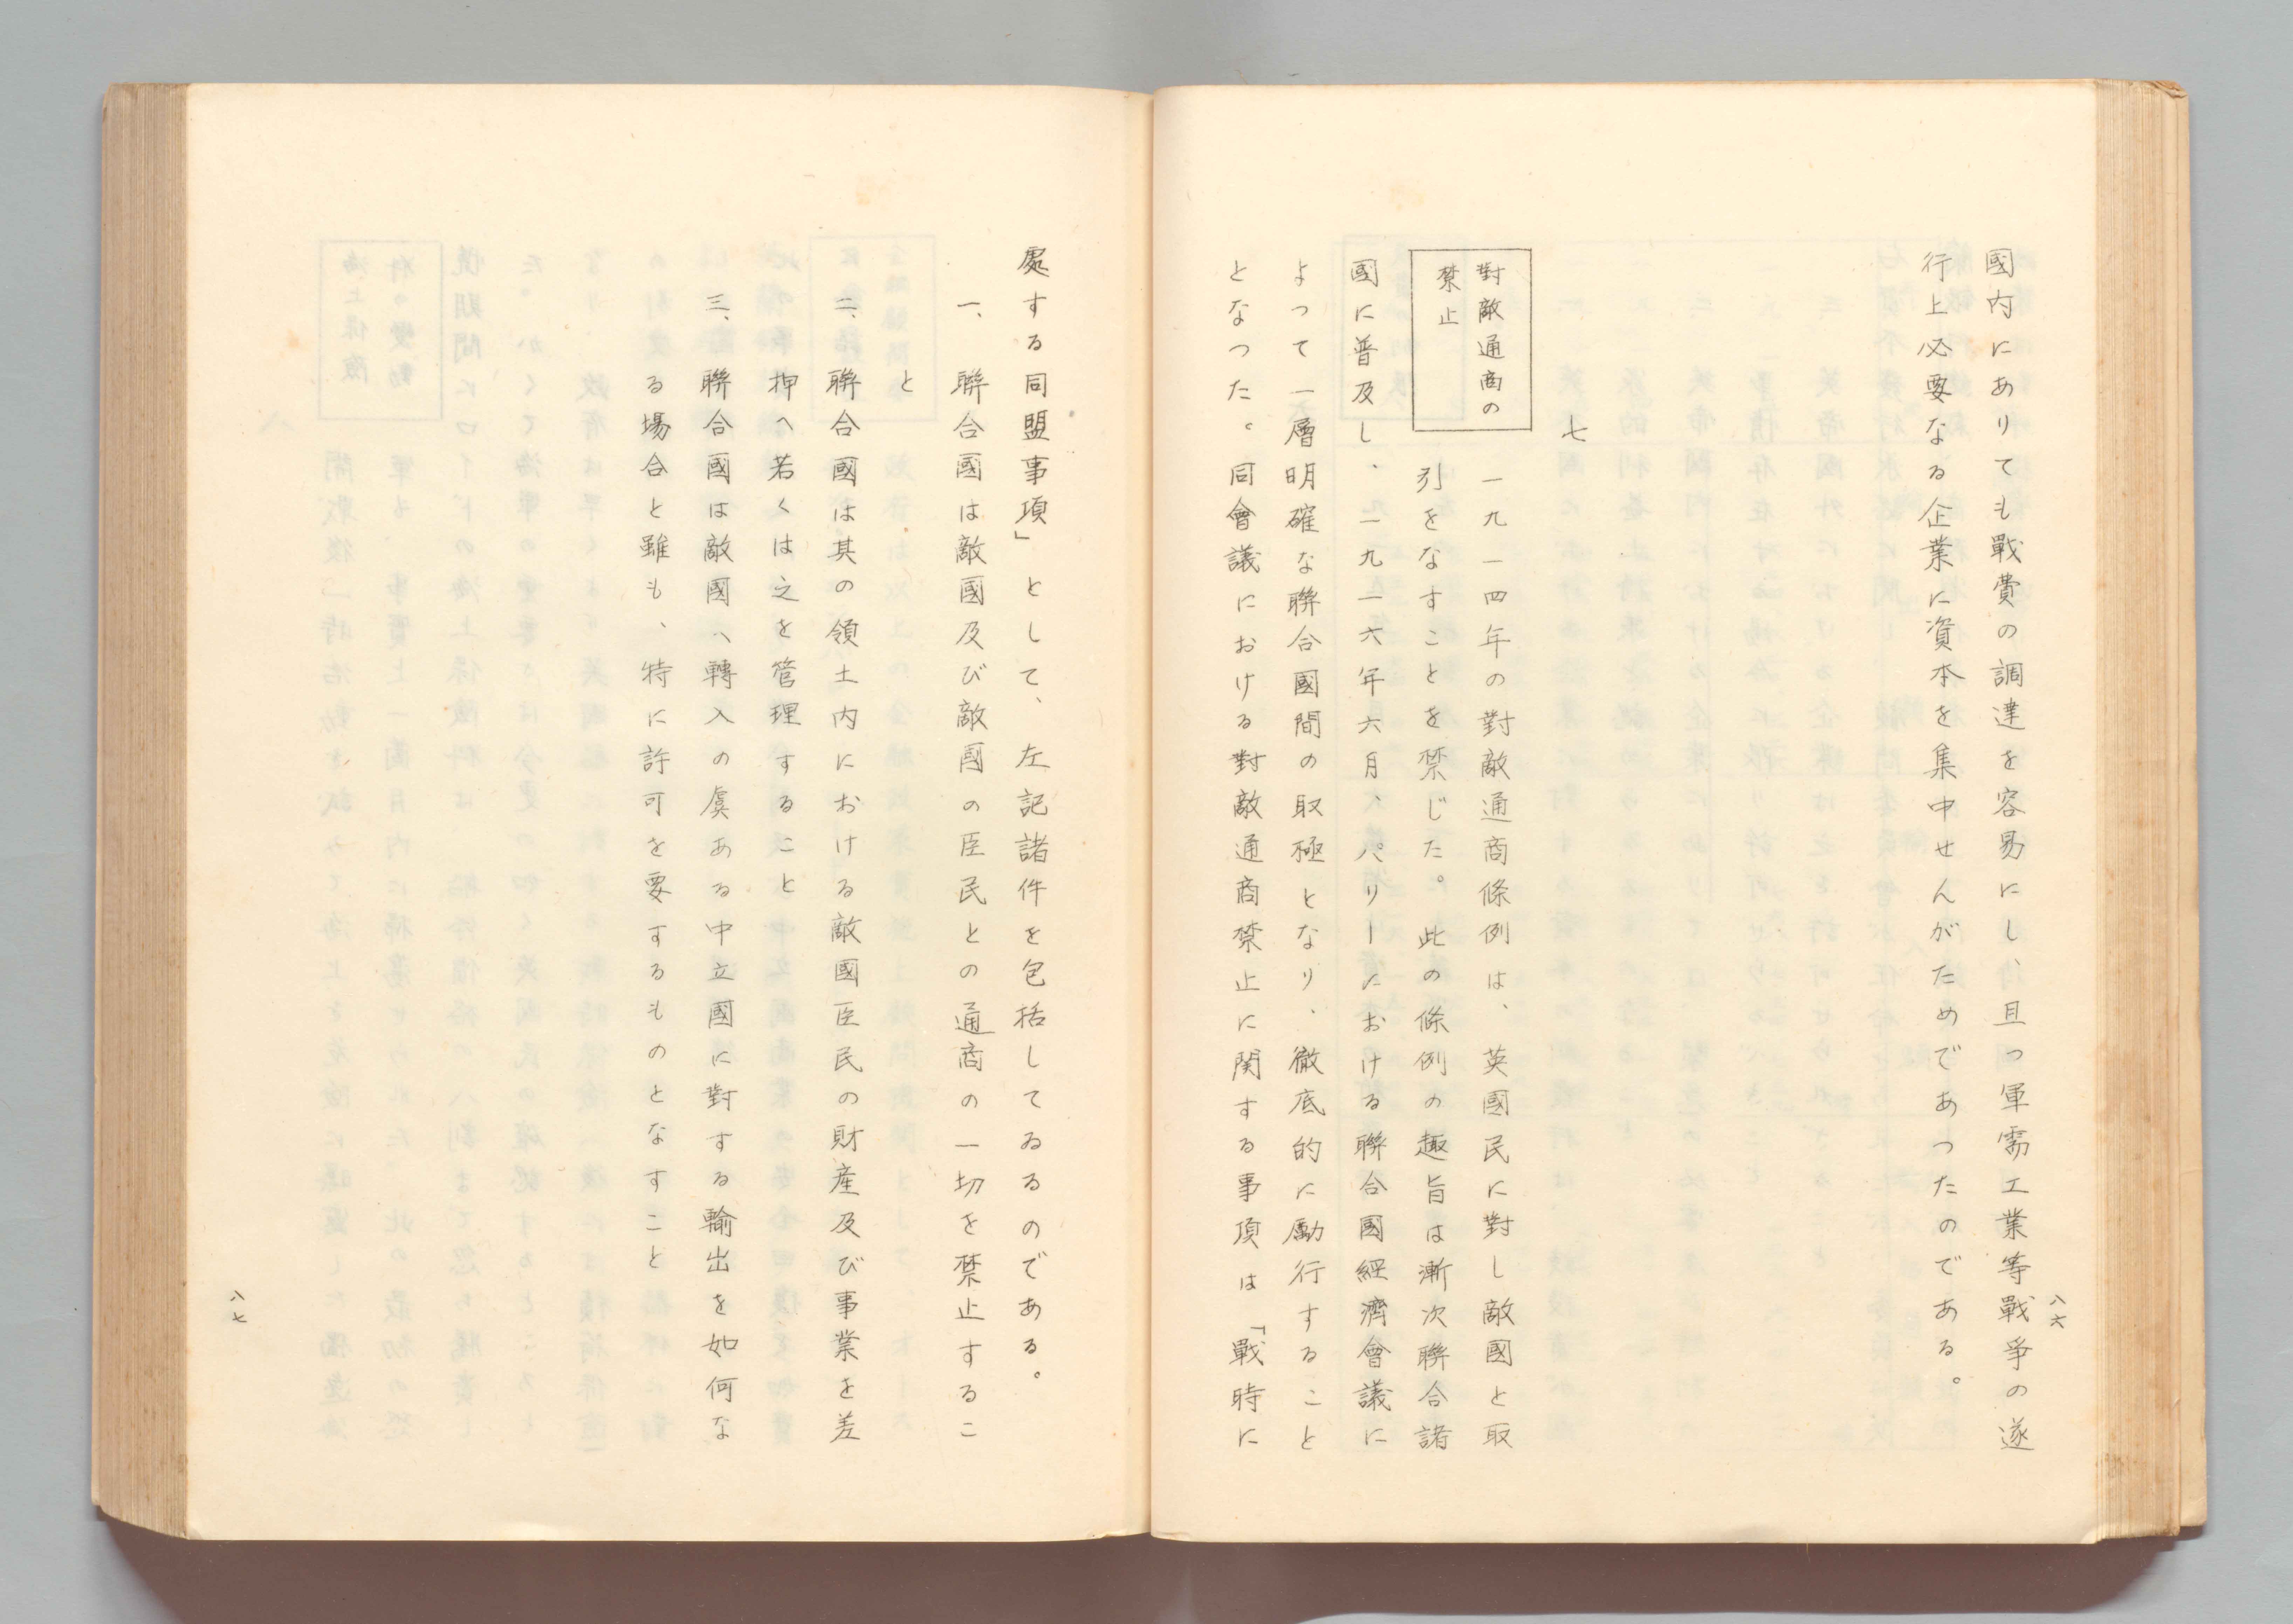 國内にありても戰費の調達を容易にし、且つ軍需工業等戰爭の遂
行上必要なる企業に資本を集中せんがためであつたのである。
七
對敵通商の
禁止
一九一四年の對敵通商條例は、英國民に對し敵國と取
引をなすことを禁じた。此の條例の趣旨は漸次聯合諸
國に普及し、一九一六年六月、パリーにおける聯合國經濟會議に
よって一層明確な聯合國間の取極となり、徹底的に勵行すること
となつた。同會議における對敵通商禁止に関する事項は「戰時に
八六
處する同盟事項」として、左記諸件を包括してゐるのである。
一、聯合國は敵國及び敵國の臣民との通商の一切を禁止するこ
と
二、聯合國は其の領土内における敵國臣民の財産及び事業を差
押へ若くは之を管理すること
三、聯合國は敵國へ轉入の虞ある中立國に對する輸出を如何な
る場合と雖も、特に許可を要するものとなすこと
八七